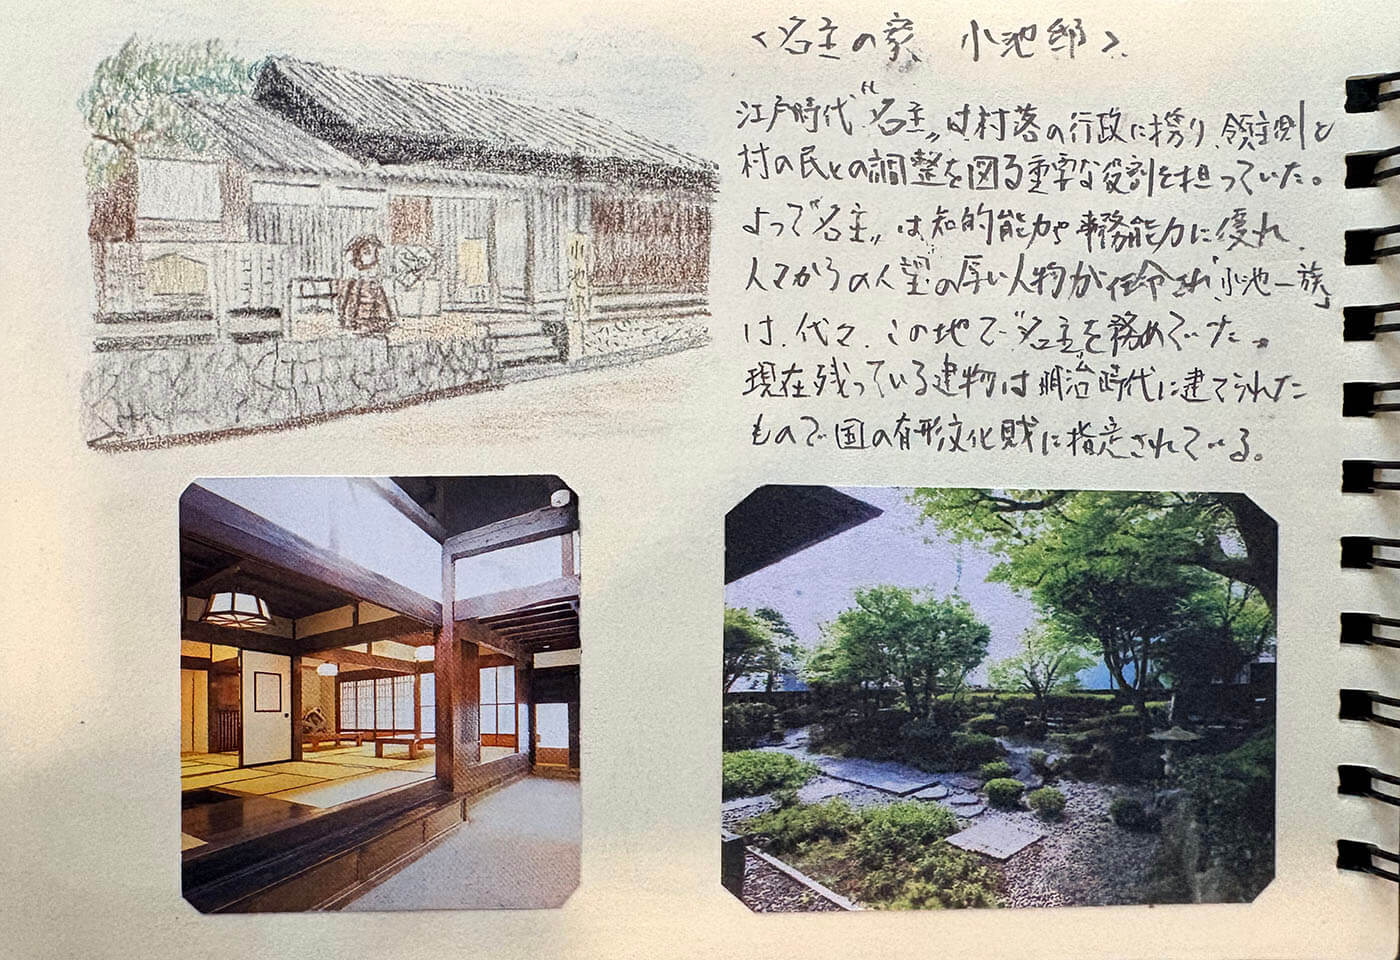 <名主の家 小池邸>
江戸時代“名主„は村落の行政に携り、領主側と
村の民との調整を図る重要な役割を担っていた。
よって“名主„は知的能力や事務能力に優れ、
人々からの人望の厚い人物が任命され「小池一族」
は、代々、この地で“名主„を務めていた。
現在残っている建物は明治時代に建てられた
もので国の有形文化財に指定されている。
小池邸